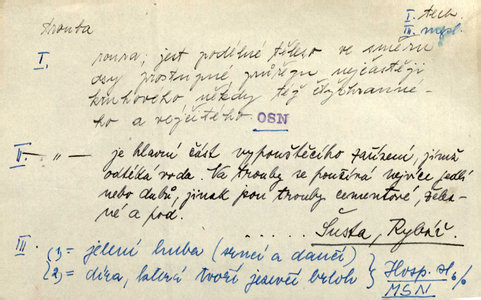 trouba
I. tech.
II. mysl.
I. roura; jest podélné těleso ve směru
osy prostupné, průřezu nejčastěji
kruhového někdy též čtyřhranné-
ho a vejčitého OSN
II. — „ — je hlavní část vypouštěcího zařízení, jímž
odtéká voda. Na trouby se používá nejvíce jedlí
nebo dubů, jinak jsou trouby cementové, žele-
né a pod.
. . . . . Šusta, Rybář
III. (1) = jelení huba (srnčí a dančí)
(2) = díra, která tvoří jezevčí brloh } Hosp. sl.
MSN